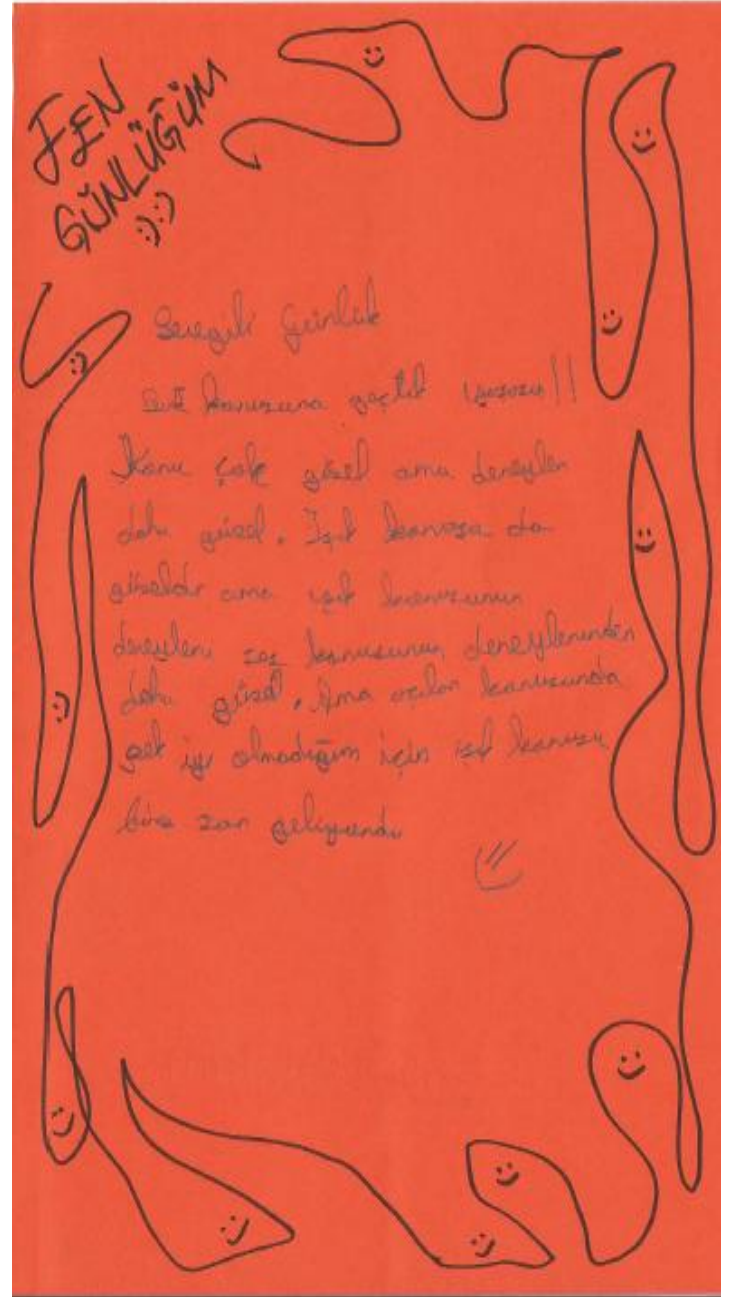 FEN
GÜNLÜĞÜM
:):)
Sevgili Günlük
konusuna geçtik
Konu çok güzel ama deneyleri
daha güzel. Işık konusu da
güzeldir ama ışık konusunun
deneyleri ses konusunun deneylerinden
daha güzel. Ama açılar konusunda
pek iyi olmadığım için ışık konusu
biraz zor geliyordu